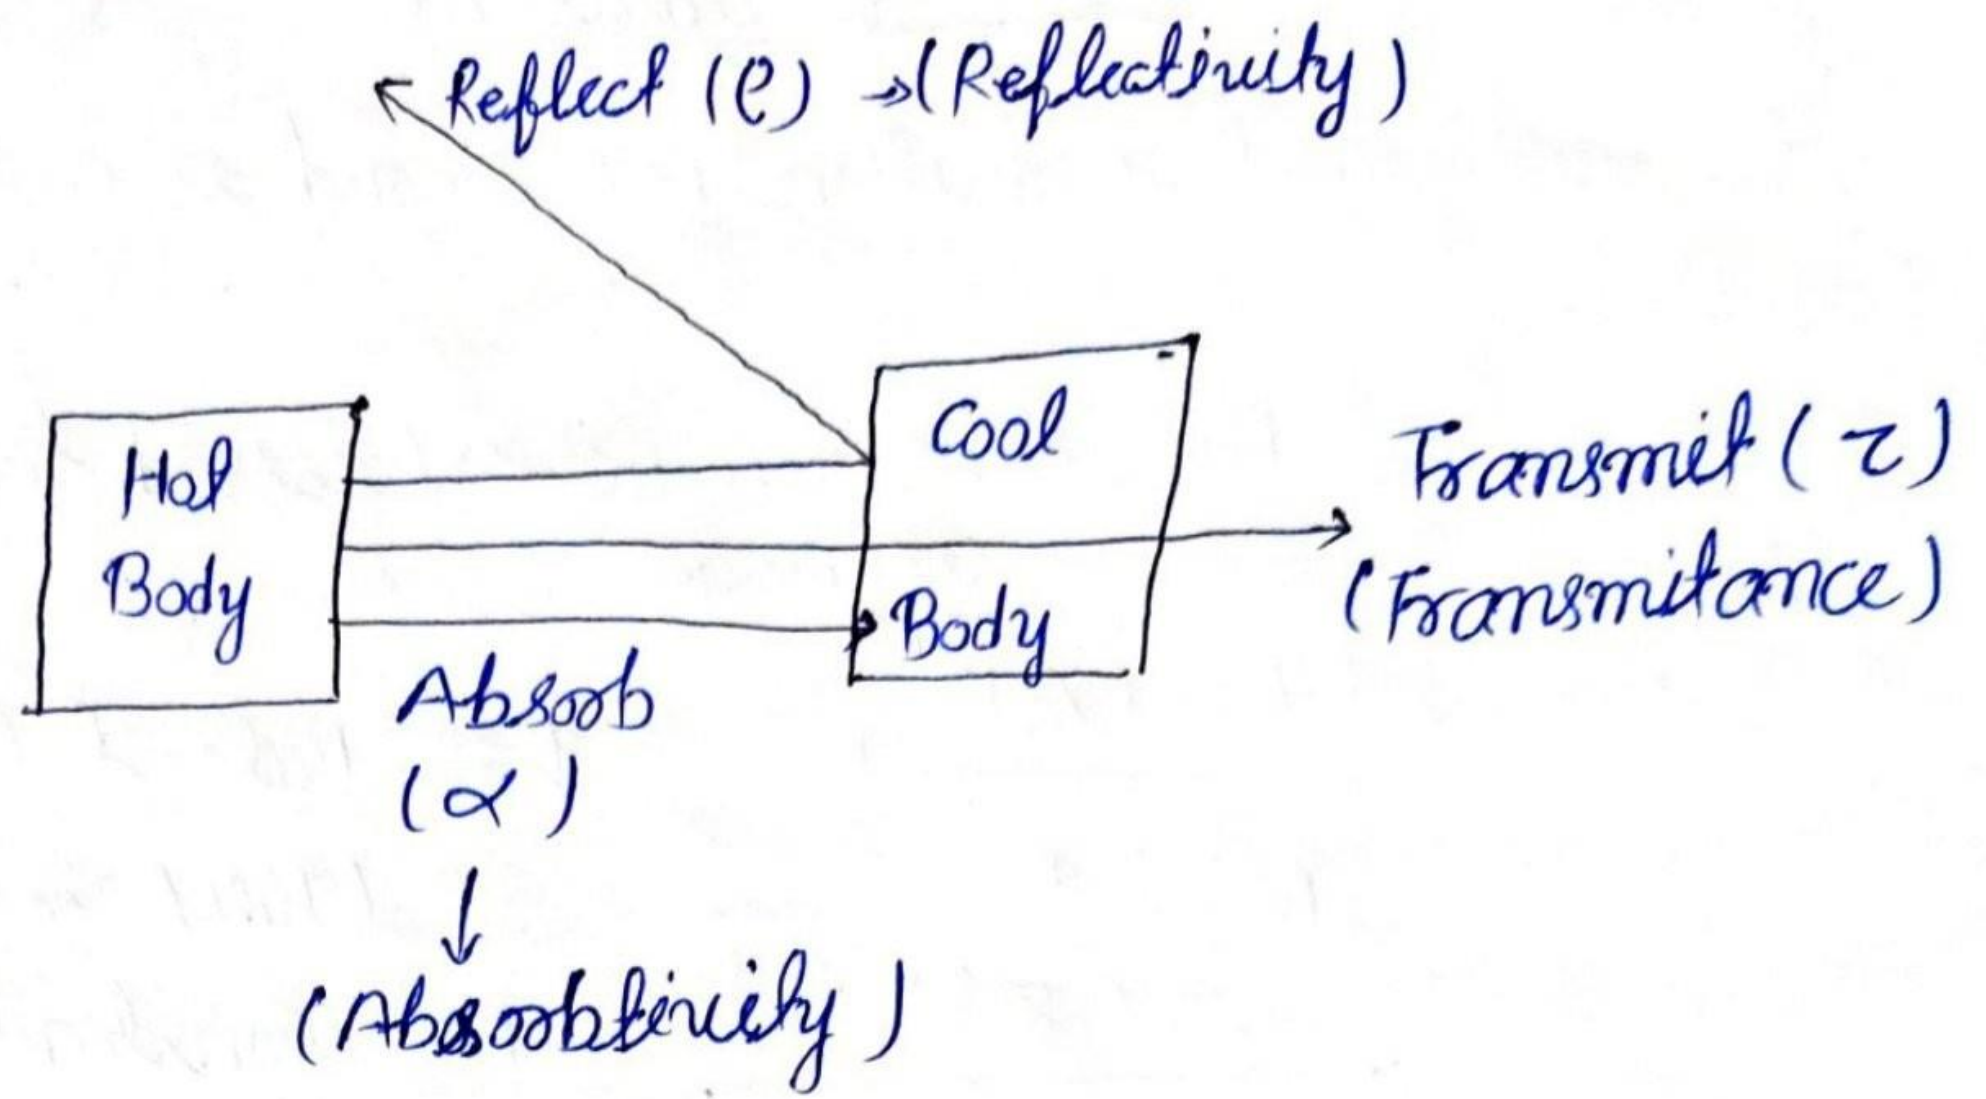 Reflect (ρ) → (Reflectivity)
Hot
Body
Cool
Body
Transmit (τ)
(Transmitance)
Absorb
(α)
↓
(Absorbtivity)